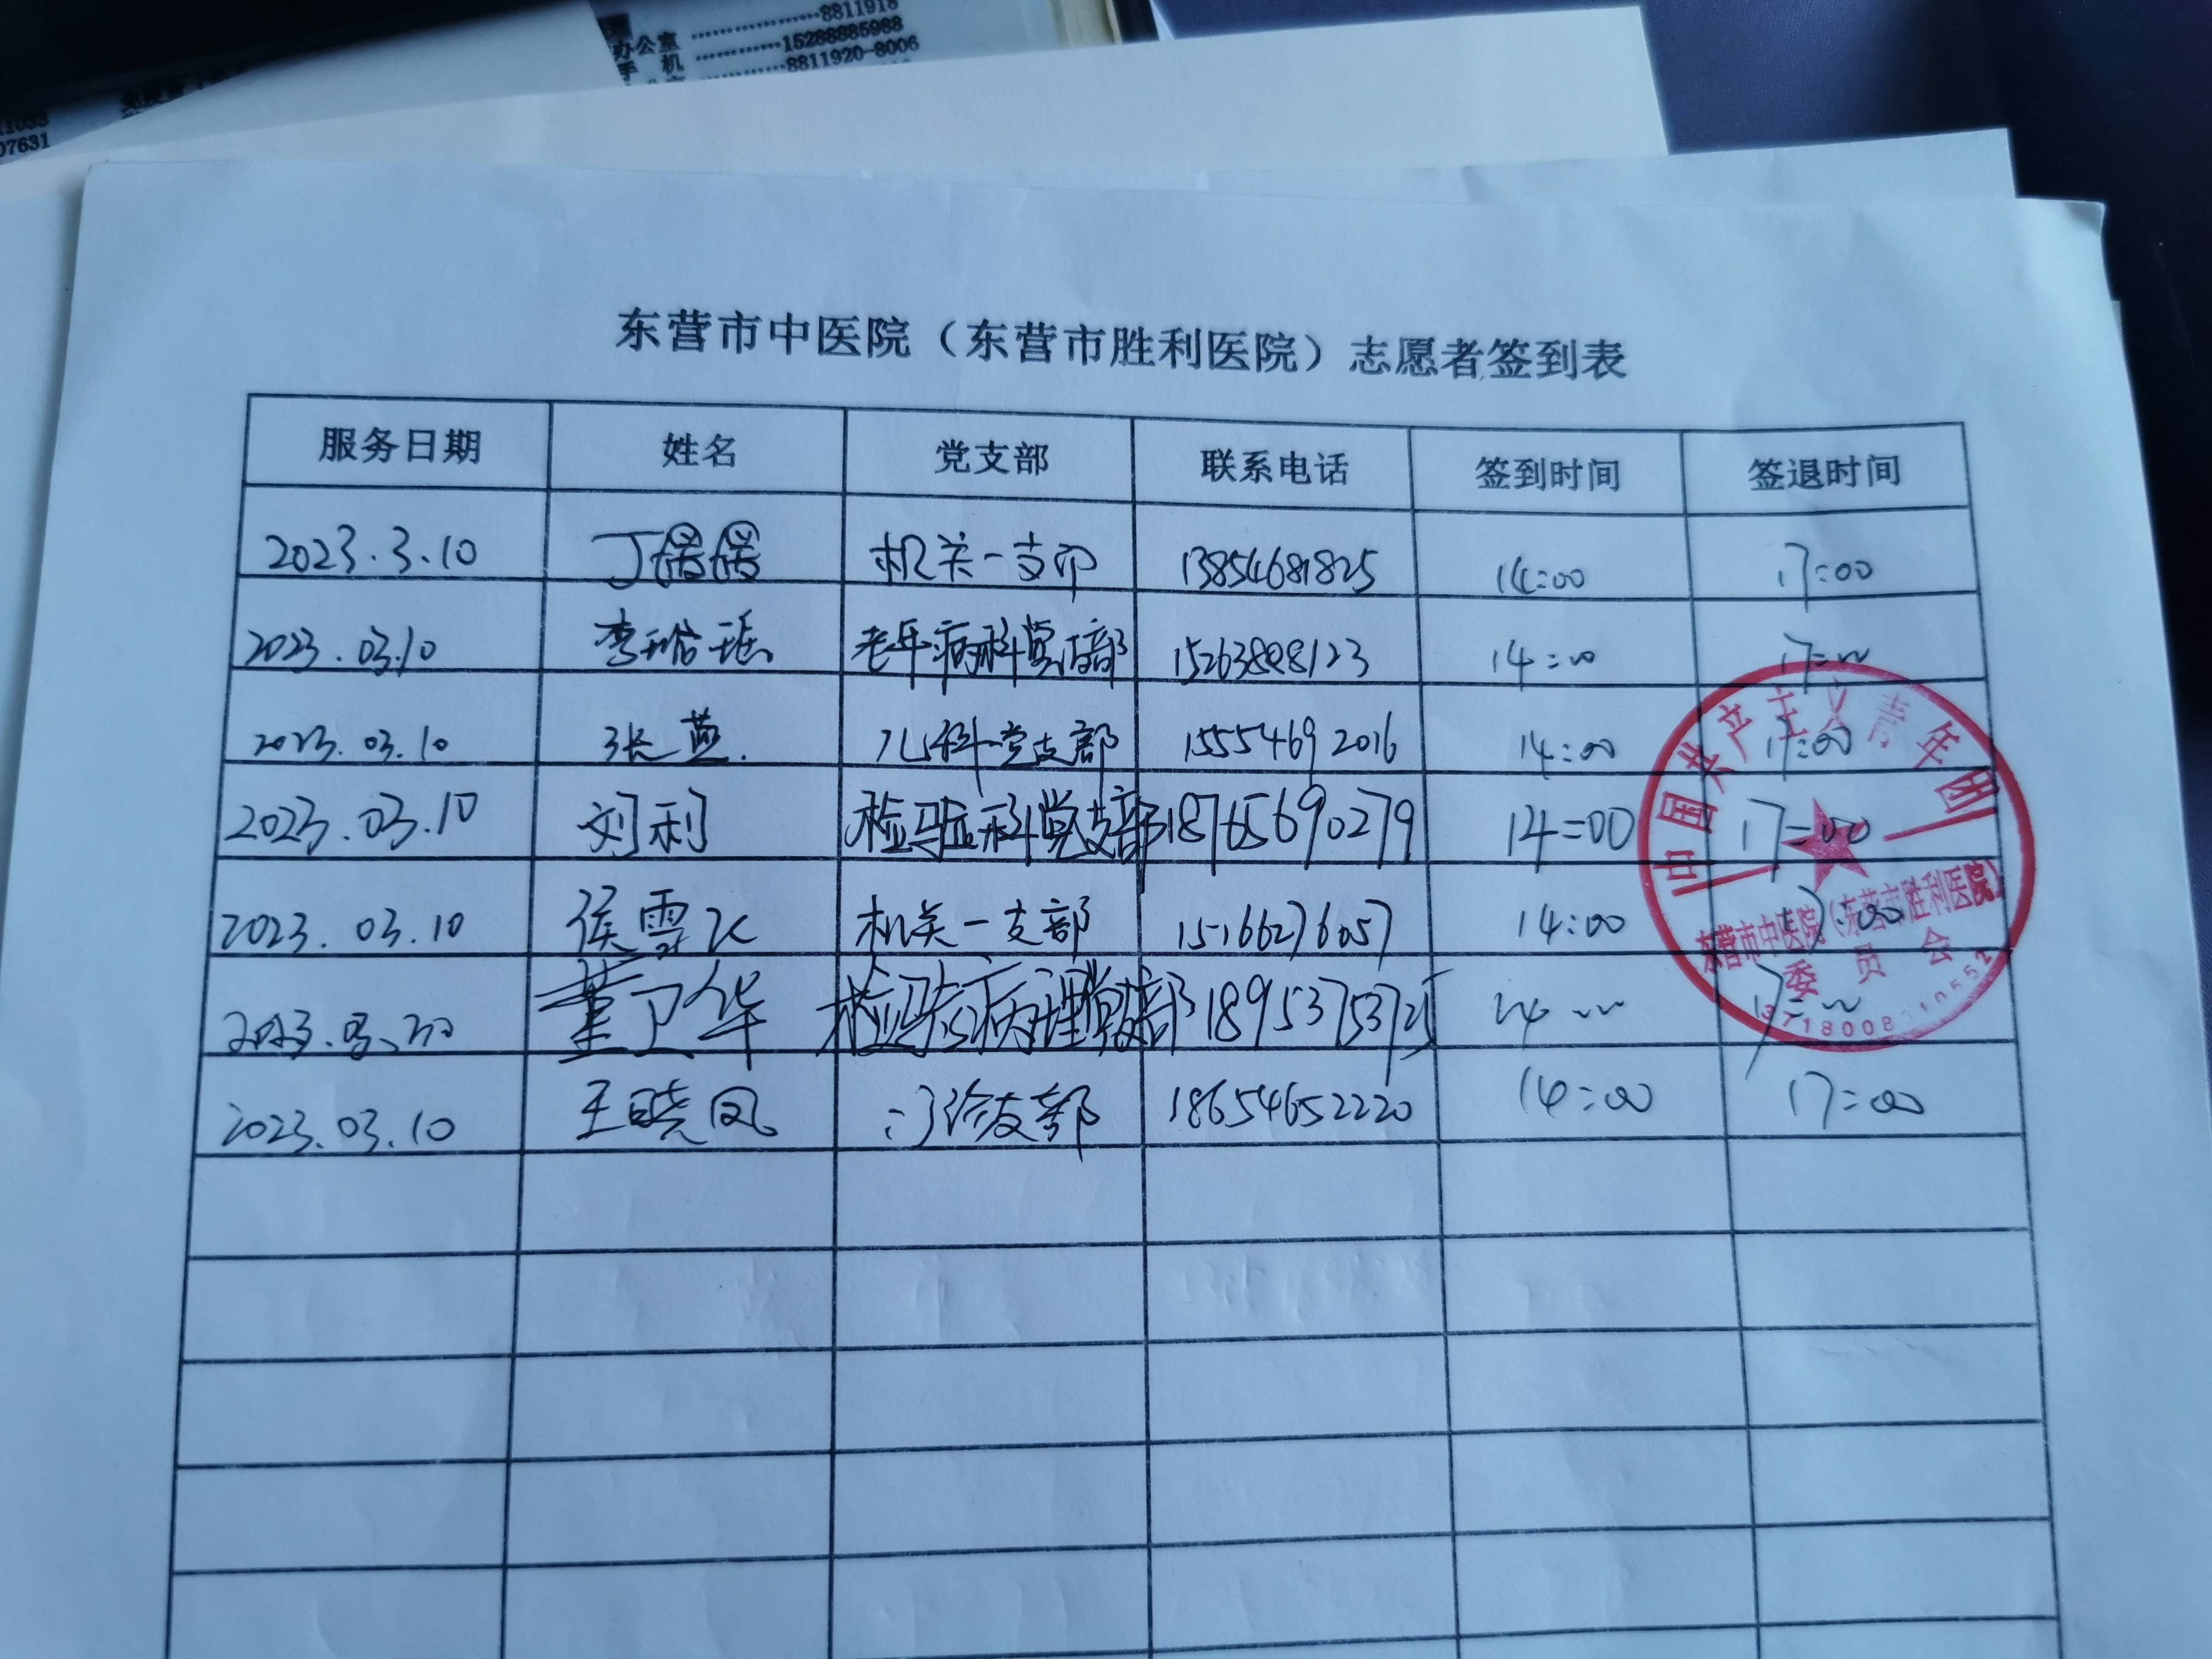 8811918
办公室 ⋯⋯⋯⋯⋯15288885988
手 机 ⋯⋯⋯⋯8811920-8006
11033
07631
东营市中医院（东营市胜利医院）志愿者签到表
服务日期 姓名 党支部 联系电话 签到时间 签退时间
2023.3.10 丁 机关一支部 13854681825 14:00 17:00
2023.03.10 李 瑶 老年病科党支部 15263898123 14:00 17:00
2023.03.10 张燕. 儿科党支部 15554692016 14:00 17:00
2023.03.10 刘利 检验科党支部 18765690279 14:00 17:00
2023.03.10 侯雪飞 机关一支部 15166276057 14:00 17:00
董卫华 检验病理党支部 18953753725 14 17:00
2023.03.10 王晓凤 门诊支部 18654652220 14:00 17:00
中国共产主义青年团
东营市中医院（东营市胜利医院）
委员会